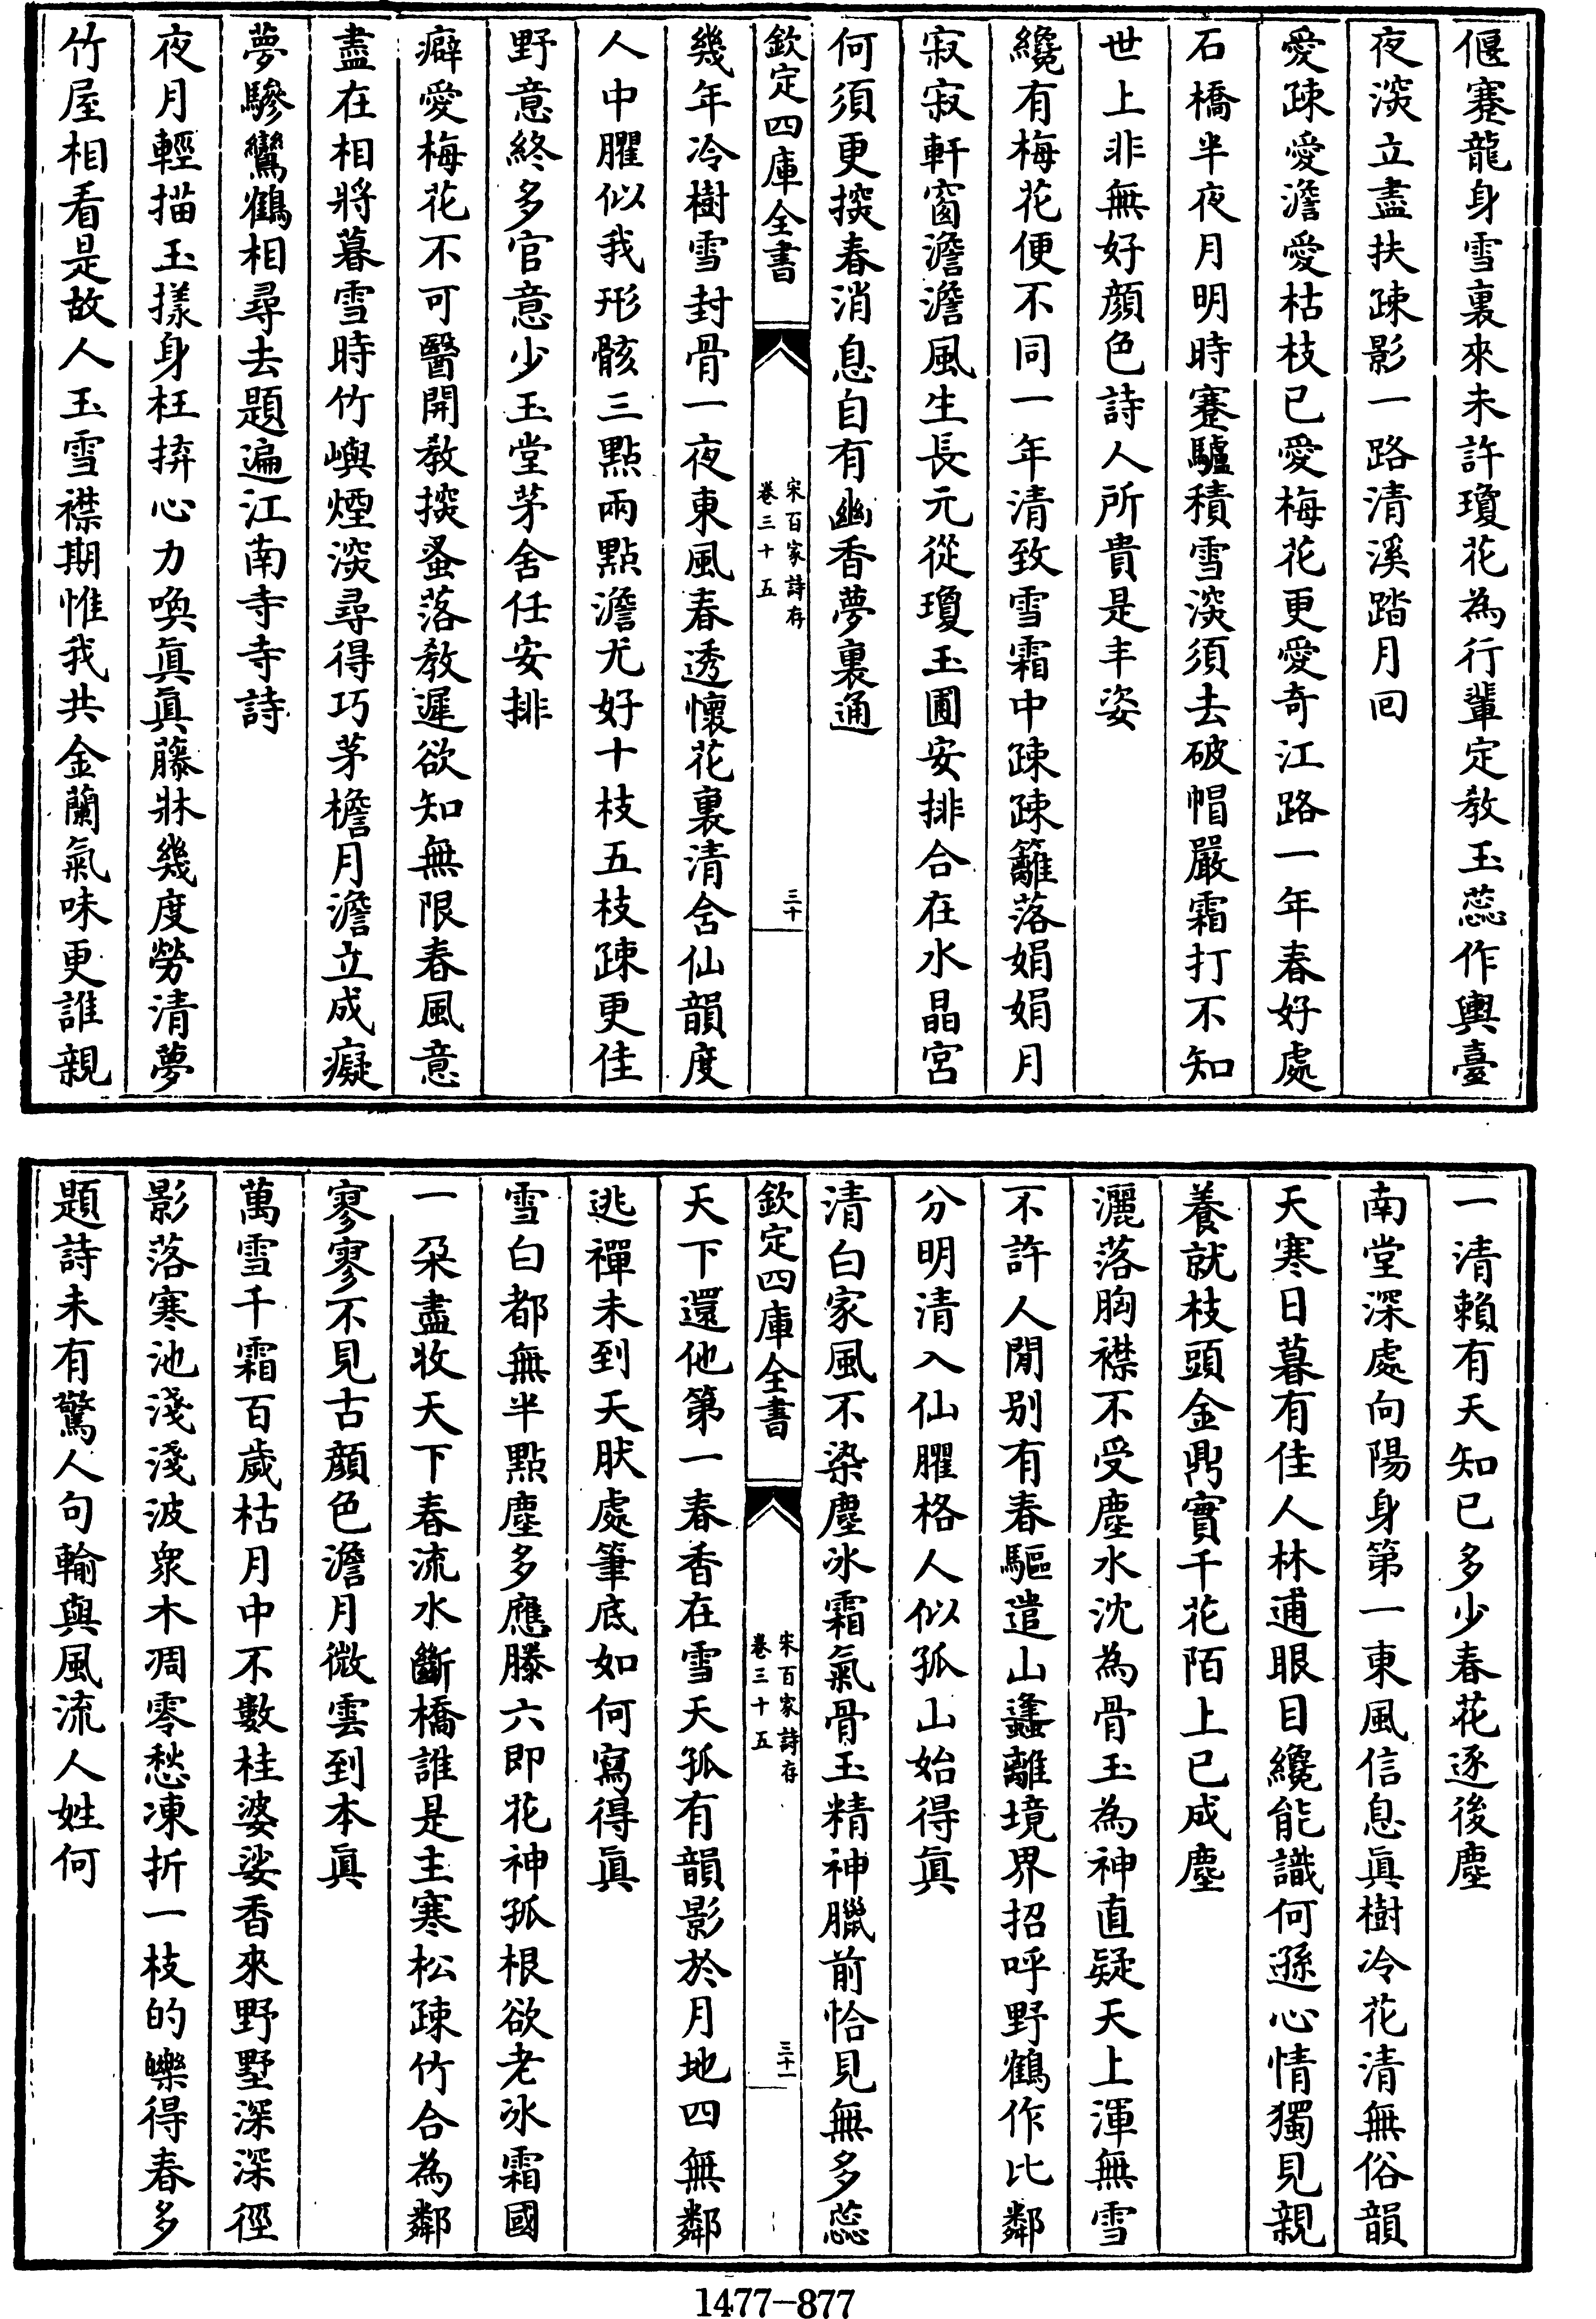 偃蹇龍身雪裏來未許瓊花為行輩定教玉蕊作輿臺
夜深立盡扶疎影一路清溪踏月回
愛疎愛澹愛枯枝已愛梅花更愛奇江路一年春好處
石橋半夜月明時蹇驢積雪深須去破帽嚴霜打不知
世上非無好顔色詩人所貴是丰姿
纔有梅花便不同一年清致雪霜中疎疎籬落娟娟月
寂寂軒窗澹澹風生長元從瓊玉圃安排合在水晶宮
何須更探春消息自有幽香夢裏通
欽定四庫全書
宋百家詩存
卷三十五
三十
幾年冷樹雪封骨一夜東風春透懷花裏清含仙韻度
人中臞似我形骸三點兩點澹尤好十枝五枝疎更佳
野意終多官意少玉堂茅舍任安排
癖愛梅花不可醫開教探蚤落教遲欲知無限春風意
盡在相將暮雪時竹嶼煙深尋得巧茅檐月澹立成癡
夢驂鸞鶴相尋去題遍江南寺寺詩
夜月輕描玉㨾身枉捹心力喚眞眞藤牀幾度勞清夢
竹屋相看是故人玉雪襟期惟我共金蘭氣味更誰親
一清賴有天知已多少春花逐後塵
南堂深處向陽身第一東風信息眞樹冷花清無俗韻
天寒日暮有佳人林逋眼目纔能識何遜心情獨見親
養就枝頭金鼎實千花陌上已成塵
灑落胸襟不受塵水沈為骨玉為神直疑天上渾無雪
不許人閒别有春驅遣山蠭離境界招呼野鶴作比鄰
分明清入仙臞格人似孤山始得眞
清白家風不染塵冰霜氣骨玉精神臘前恰見無多蕊
欽定四庫全書
宋百家詩存
卷三十五
三十一
天下還他第一春香在雪天孤有韻影於月地四無鄰
逃禪未到天肰處筆底如何寫得眞
雪白都無半點塵多應滕六即花神孤根欲老冰霜國
一朶盡收天下春流水斷橋誰是主寒松疎竹合為鄰
寥寥不見古顔色澹月微雲到本眞
萬雪千霜百歲枯月中不數桂婆娑香來野墅深深徑
影落寒池淺淺波衆木凋零愁凍折一枝的皪得春多
題詩未有驚人句輸與風流人姓何
1477-877